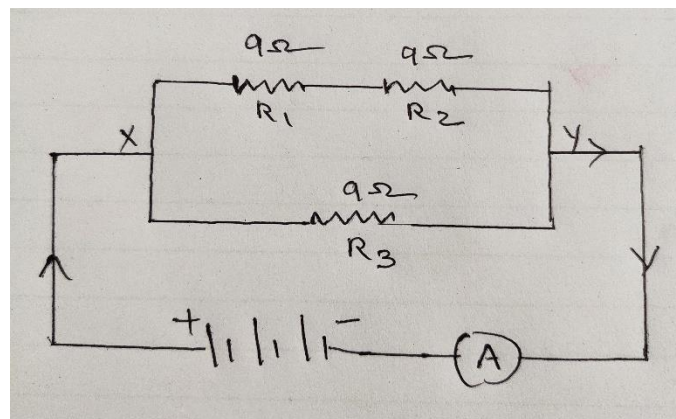 9Ω 9Ω
R1 R2
X Y
9Ω
R3
+ −
A